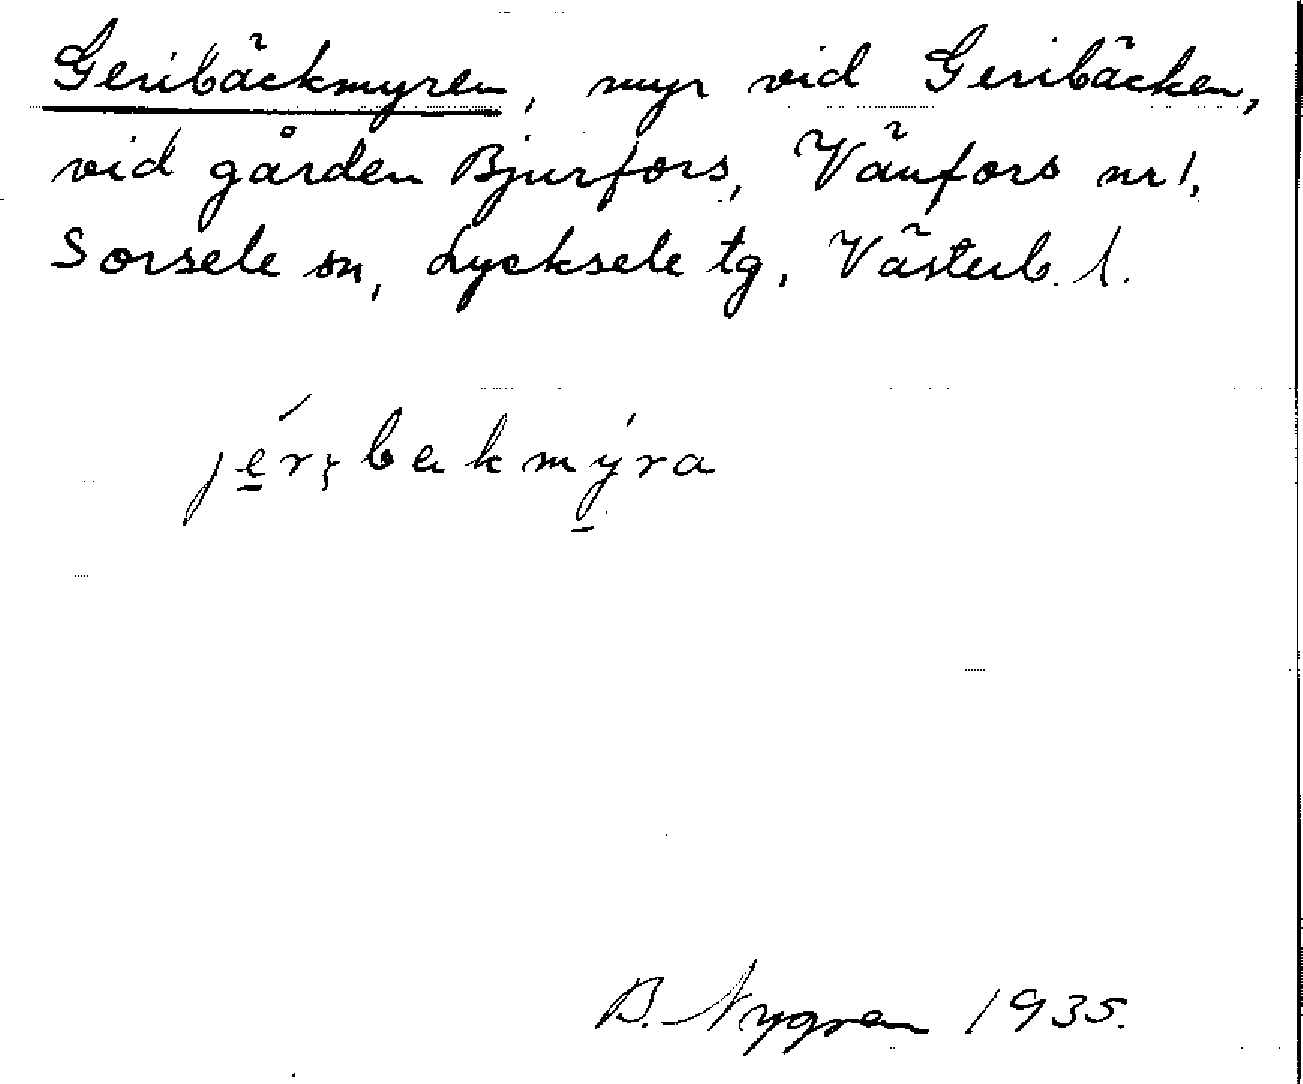 Geribäckmyren, myr vid Geribäcken,
vid gården Bjurfors, Vänfors nr 1,
Sorsele sn, Lycksele tg, Västerb. l.
jérɩbakmýra
B. Nygren 1935.